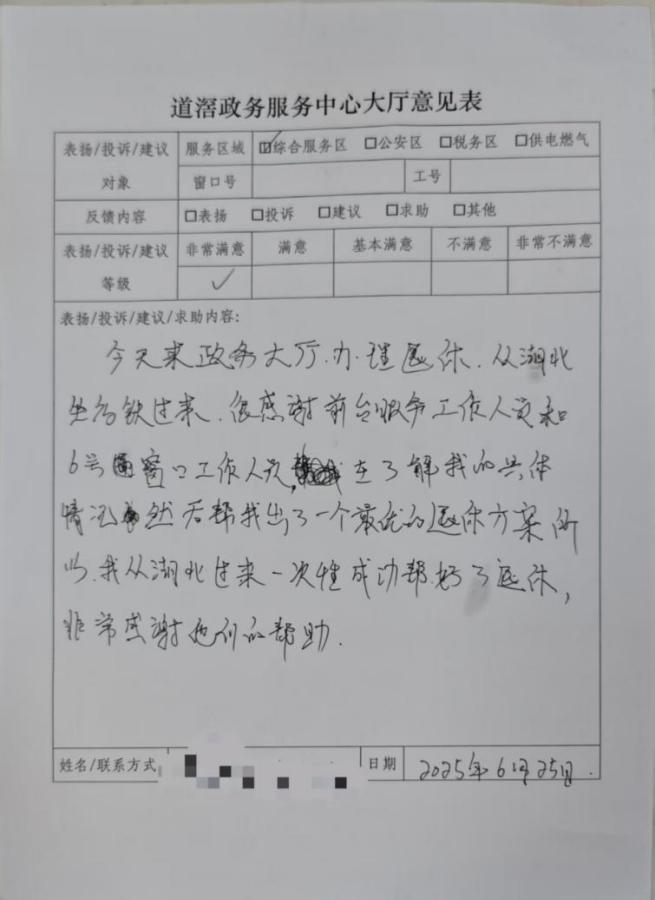 道滘政务服务中心大厅意见表
表扬/投诉/建议 服务区域 ☑综合服务区 □公安区 □税务区 □供电燃气
对象 窗口号 工号
反馈内容 □表扬 □投诉 □建议 □求助 □其他
表扬/投诉/建议 非常满意 满意 基本满意 不满意 非常不满意
等级 ✓
表扬/投诉/建议/求助内容:
今天来政务大厅办理退休.从湖北
坐高铁过来.很感谢前台服务工作人员和
6号窗口工作人员,在了解我的具体
情况然后帮我出了一个最优的退休方案所
以.我从湖北过来一次性成功帮.好了退休,
非常感谢他们的帮助.
姓名/联系方式 日期 2025年6月25日.